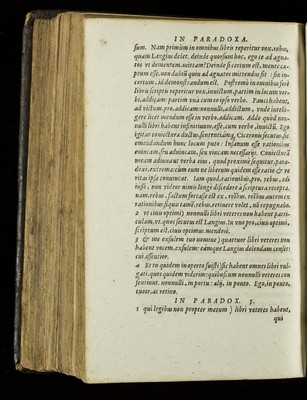 IN PARADOXA.
sum. Nam primùm in omnibus libris reperitur vox, rebus,
quam Langius delet. deinde quorsum hoc, ego te ad agna-
tos vt dementem mittam? Deinde si certum est, mente ca-
ptum esse, non dubiũ quin ad agnatos mittendus sit: sin in-
certum, id demonstrandum est. Postremò in omnibus ferè
libris scriptis reperitur vox, inuictum, partim in locum ver-
bi, addicam: partim vnà cum eo ipso verbo. Pauci habent,
ad victum. pro, addicam: nonnulli, addictum, vnde intelli-
gere licet mendum esse in verbo, addicam. Adde quòd non-
nulli libri habent infinitiuum, esse, cum verbo, inuictũ. Ego
igitur coniectura ductus, sententiámque Ciceronis secutus sic
emendandum hunc locum puto: Insanum esse rationibus
euincam, seu aduincam, seu vincam necessariis. Coniecturã
meam adiuuant verba eius, quod proximè sequitur, para-
doxi, extrema: cùm eum ne liberum quidem esse ratio &
veritas ipsa conuincat. Iam quod, rationibus, pro, rebus, edi
iussi, non videor nimis longè discedere à scriptura recepta.
nam, rebus, factum fortasse est ex, roībus. rebus autem ex
rationibus siquo tamē, rebus, retinere volet, nō repugnabo.
2 vt ciuis optimi) nonnulli libri veteres non habent parti-
culam, vt. quos secutus est Langius. In vno pro, ciuis optimi,
scriptum est, ciuis optimus. mendosè.
3 & me exsulem tuo nomine) quattuor libri veteres non
habent vocem, exsulem: eámque Langius delendam censet:
cui assentior.
4 Et tu quidem in operto fuisti) sic habent omnes libri vul-
gati, quos quidem viderim: quibuscum nonnulli veteres con
sentiunt. nonnulli, in portu: alij, in ponto. Ego, in ponto,
tueor, ac retineo.
IN PARADOX. 5.
1 qui legibus non propter metum) libri veteres habent,
qui